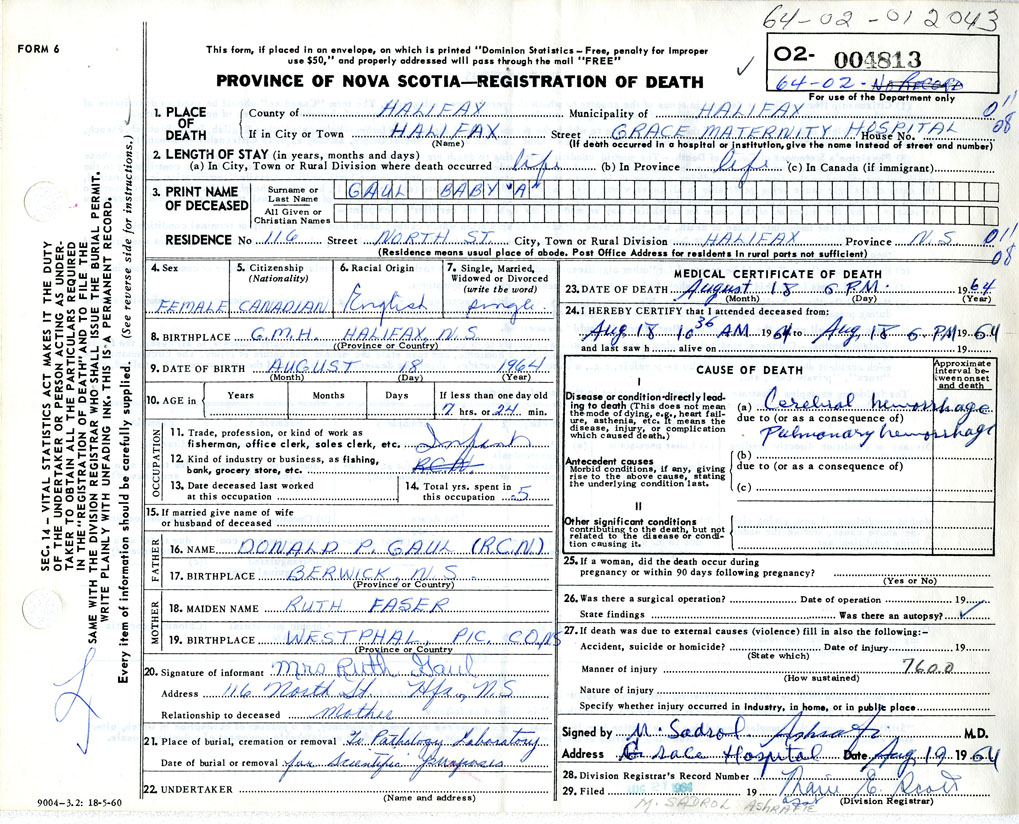 64-02-012043
FORM 6
This form, if placed in an envelope, on which is printed "Dominion Statistics—Free, penalty for improper
use $50," and properly addressed will pass through the mail "FREE"
O2- 004813
64-02- No Record
For use of the Department only
PROVINCE OF NOVA SCOTIA—REGISTRATION OF DEATH
1. PLACE OF DEATH
County of HALIFAX Municipality of HALIFAX 011
If in City or Town HALIFAX Street GRACE MATERNITY HOSPITAL House No. 08
(Name) (If death occurred in a hospital or institution, give the name instead of street and number)
2. LENGTH OF STAY (in years, months and days)
(a) In City, Town or Rural Division where death occurred life (b) In Province life (c) In Canada (if immigrant)
3. PRINT NAME OF DECEASED
Surname or Last Name GAUL BABY "A"
All Given or Christian Names
RESIDENCE No 116 Street NORTH ST. City, Town or Rural Division HALIFAX Province N.S 011
(Residence means usual place of abode. Post Office Address for residents in rural parts not sufficient) 08
4. Sex
FEMALE
5. Citizenship (Nationality)
CANADIAN
6. Racial Origin
English
7. Single, Married, Widowed or Divorced (write the word)
single
8. BIRTHPLACE G.M.H. HALIFAX, N.S
(Province or Country)
9. DATE OF BIRTH AUGUST 18 1964
(Month) (Day) (Year)
10. AGE in Years Months Days If less than one day old
7 hrs. or 24 min.
OCCUPATION
11. Trade, profession, or kind of work as
fisherman, office clerk, sales clerk, etc. Infant
12. Kind of industry or business, as fishing,
bank, grocery store, etc. RCN
13. Date deceased last worked
at this occupation
14. Total yrs. spent in
this occupation 5
15. If married give name of wife
or husband of deceased
FATHER
16. NAME DONALD P. GAUL (R.C.N.)
17. BIRTHPLACE BERWICK, N.S.
(Province or Country)
MOTHER
18. MAIDEN NAME RUTH FASER
19. BIRTHPLACE WESTPHAL, PIC. CO. NS
(Province or Country)
20. Signature of informant Mrs Ruth Gaul
Address 116 North St. Hfx, N.S
Relationship to deceased Mother
21. Place of burial, cremation or removal To Pathology Laboratory
Date of burial or removal for Scientific Purposes
22. UNDERTAKER
(Name and address)
9004-3.2: 18-5-60
MEDICAL CERTIFICATE OF DEATH
23. DATE OF DEATH August 18 6 P.M. 1964
(Month) (Day) (Year)
24. I HEREBY CERTIFY that I attended deceased from:
Aug 18 10 36 AM 1964 to Aug, 18 6 PM 1964
and last saw h alive on 19
CAUSE OF DEATH
Approximate interval between onset and death
I
Disease or condition-directly leading to death (This does not mean
the mode of dying, e.g., heart failure, asthenia, etc. It means the
disease, injury, or complication
which caused death.)
(a) Cerebral hemorrhage
due to (or as a consequence of)
Pulmonary hemorrhage
Antecedent causes
Morbid conditions, if any, giving
rise to the above cause, stating
the underlying condition last.
(b)
due to (or as a consequence of)
(c)
II
Other significant conditions
contributing to the death, but not
related to the disease or condition causing it.
25. If a woman, did the death occur during
pregnancy or within 90 days following pregnancy?
(Yes or No)
26. Was there a surgical operation? Date of operation 19
State findings Was there an autopsy? ✓
27. If death was due to external causes (violence) fill in also the following:-
Accident, suicide or homicide? Date of injury 19
(State which)
Manner of injury 7600
(How sustained)
Nature of injury
Specify whether injury occurred in industry, in home, or in public place
Signed by M. Sadrol Ashrafi M.D.
Address Grace Hospital Date Aug, 19 1964
28. Division Registrar's Record Number
29. Filed 19 Marie E. Scott
(Division Registrar)
M. SADROL ASHRAFIE
SEC. 14 — VITAL STATISTICS ACT MAKES IT THE DUTY
OF THE UNDERTAKER OR PERSON ACTING AS UNDERTAKER TO OBTAIN ALL THE PARTICULARS REQUIRED
IN THE "REGISTRATION OF DEATH" AND TO FILE THE
SAME WITH THE DIVISION REGISTRAR WHO SHALL ISSUE THE BURIAL PERMIT.
WRITE PLAINLY WITH UNFADING INK. THIS IS A PERMANENT RECORD.
Every item of information should be carefully supplied. (See reverse side for instructions.)